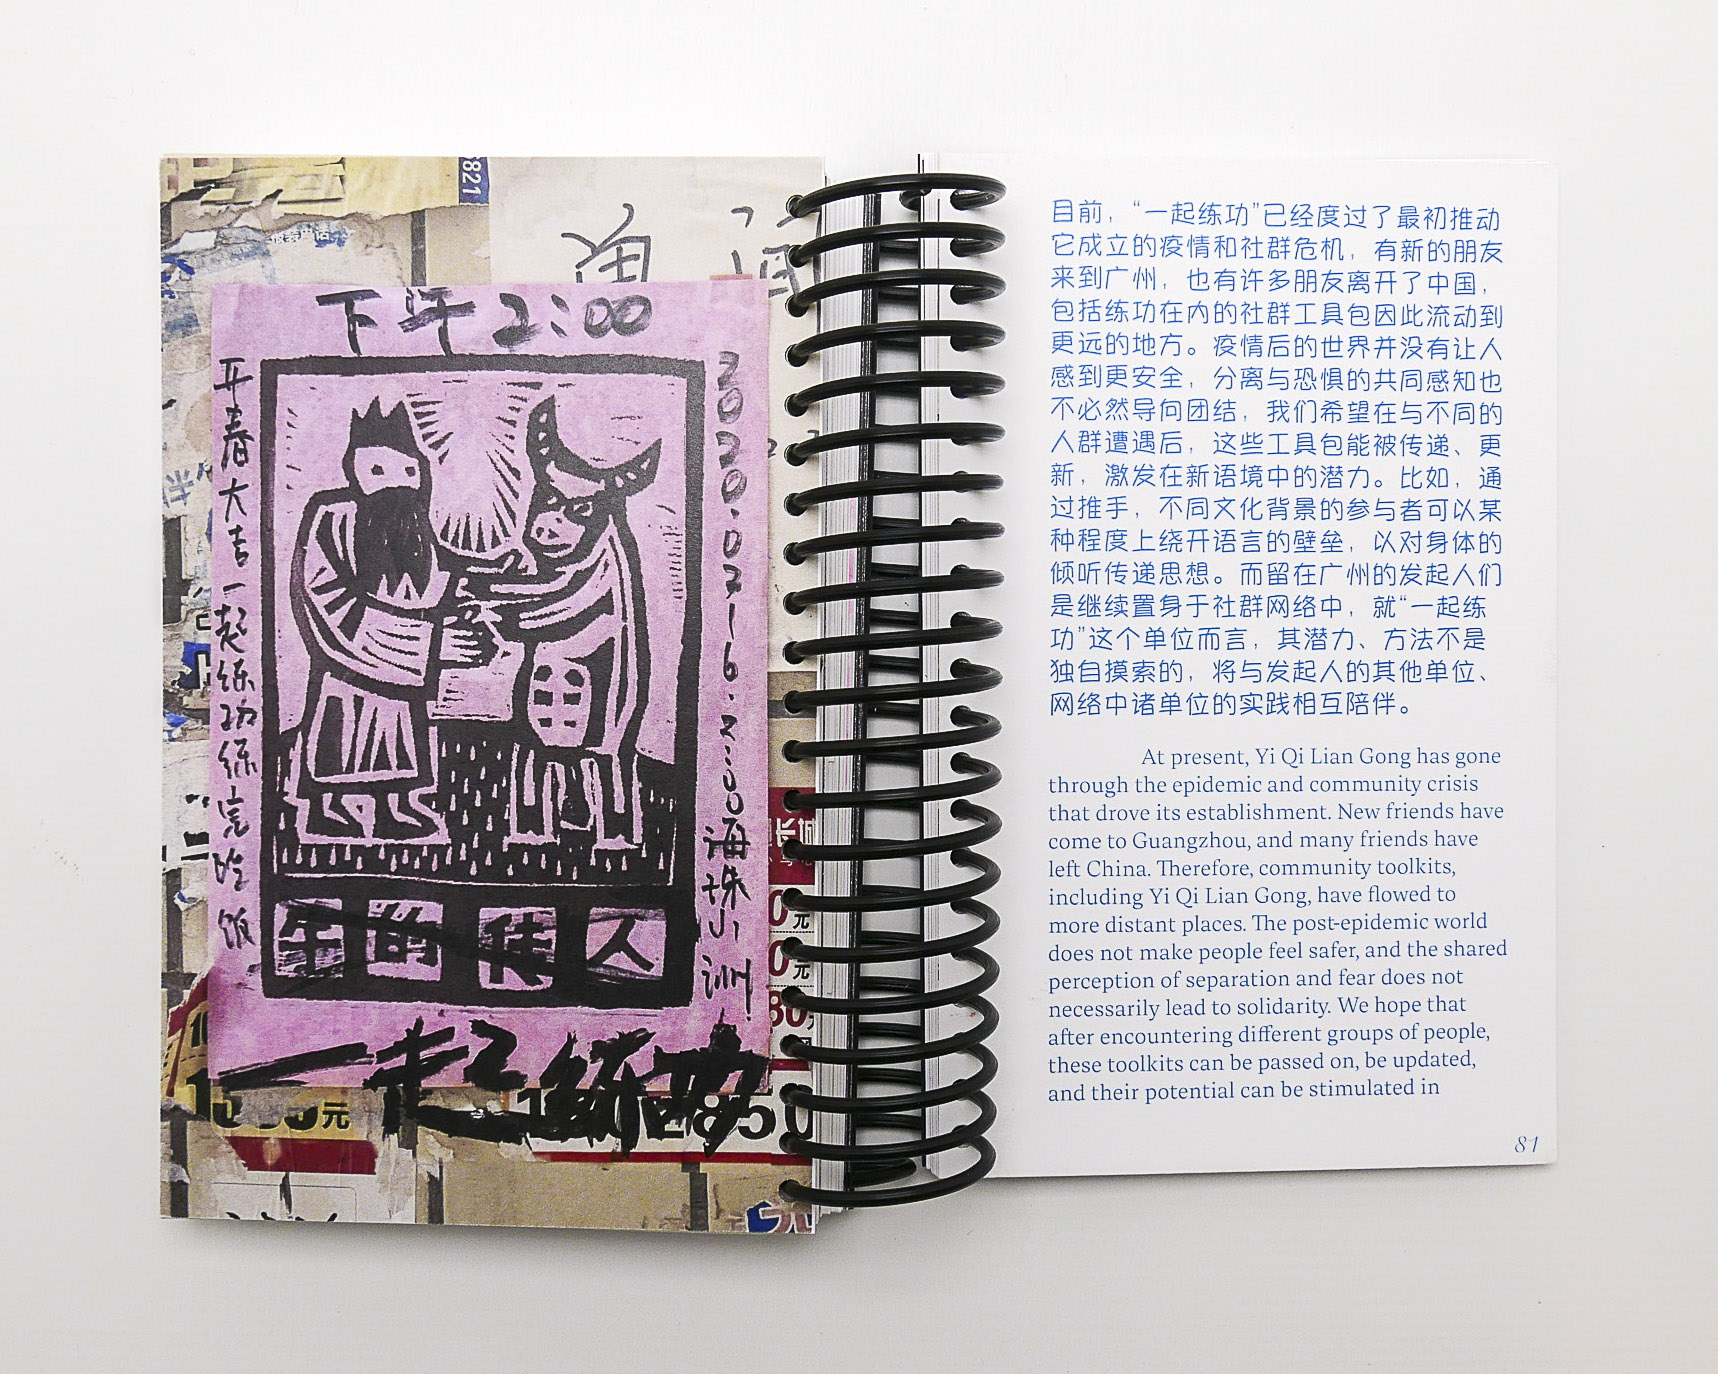 821
下午2:00
开春大吉一起练功练完吃饭
2020.03.16.2:00海珠小洲
牛的传人
一起练功
元
元
80
元
850
目前，“一起练功”已经度过了最初推动
它成立的疫情和社群危机，有新的朋友
来到广州，也有许多朋友离开了中国，
包括练功在内的社群工具包因此流动到
更远的地方。疫情后的世界并没有让人
感到更安全，分离与恐惧的共同感知也
不必然导向团结，我们希望在与不同的
人群遭遇后，这些工具包能被传递、更
新，激发在新语境中的潜力。比如，通
过推手，不同文化背景的参与者可以某
种程度上绕开语言的壁垒，以对身体的
倾听传递思想。而留在广州的发起人们
是继续置身于社群网络中，就“一起练
功”这个单位而言，其潜力、方法不是
独自摸索的，将与发起人的其他单位、
网络中诸单位的实践相互陪伴。
At present, Yi Qi Lian Gong has gone
through the epidemic and community crisis
that drove its establishment. New friends have
come to Guangzhou, and many friends have
left China. Therefore, community toolkits,
including Yi Qi Lian Gong, have flowed to
more distant places. The post-epidemic world
does not make people feel safer, and the shared
perception of separation and fear does not
necessarily lead to solidarity. We hope that
after encountering different groups of people,
these toolkits can be passed on, be updated,
and their potential can be stimulated in
81